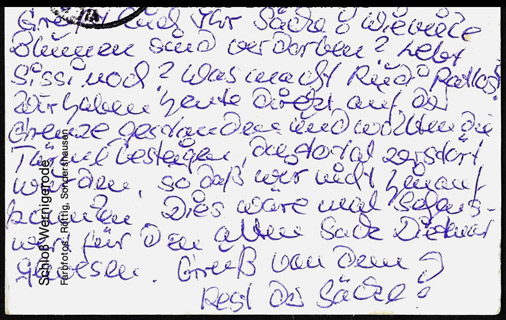 Grüßt Euch Ihr Säcke! Wieviele
Blumen sind verdorben? Lebt
Sissi noch? Was macht
Wir haben heute direkt auf der
Grenze gestanden und wollten die
Türme besteigen, zerstört
worden, so daß wir nicht hinauf
konnten. Dies wäre mal
was für den alten Sack Dietmar
gewesen. Gruß von dem
Rest der Säcke!
Schloß Wernigerode
Farbfotos: Rettig, Sondershausen